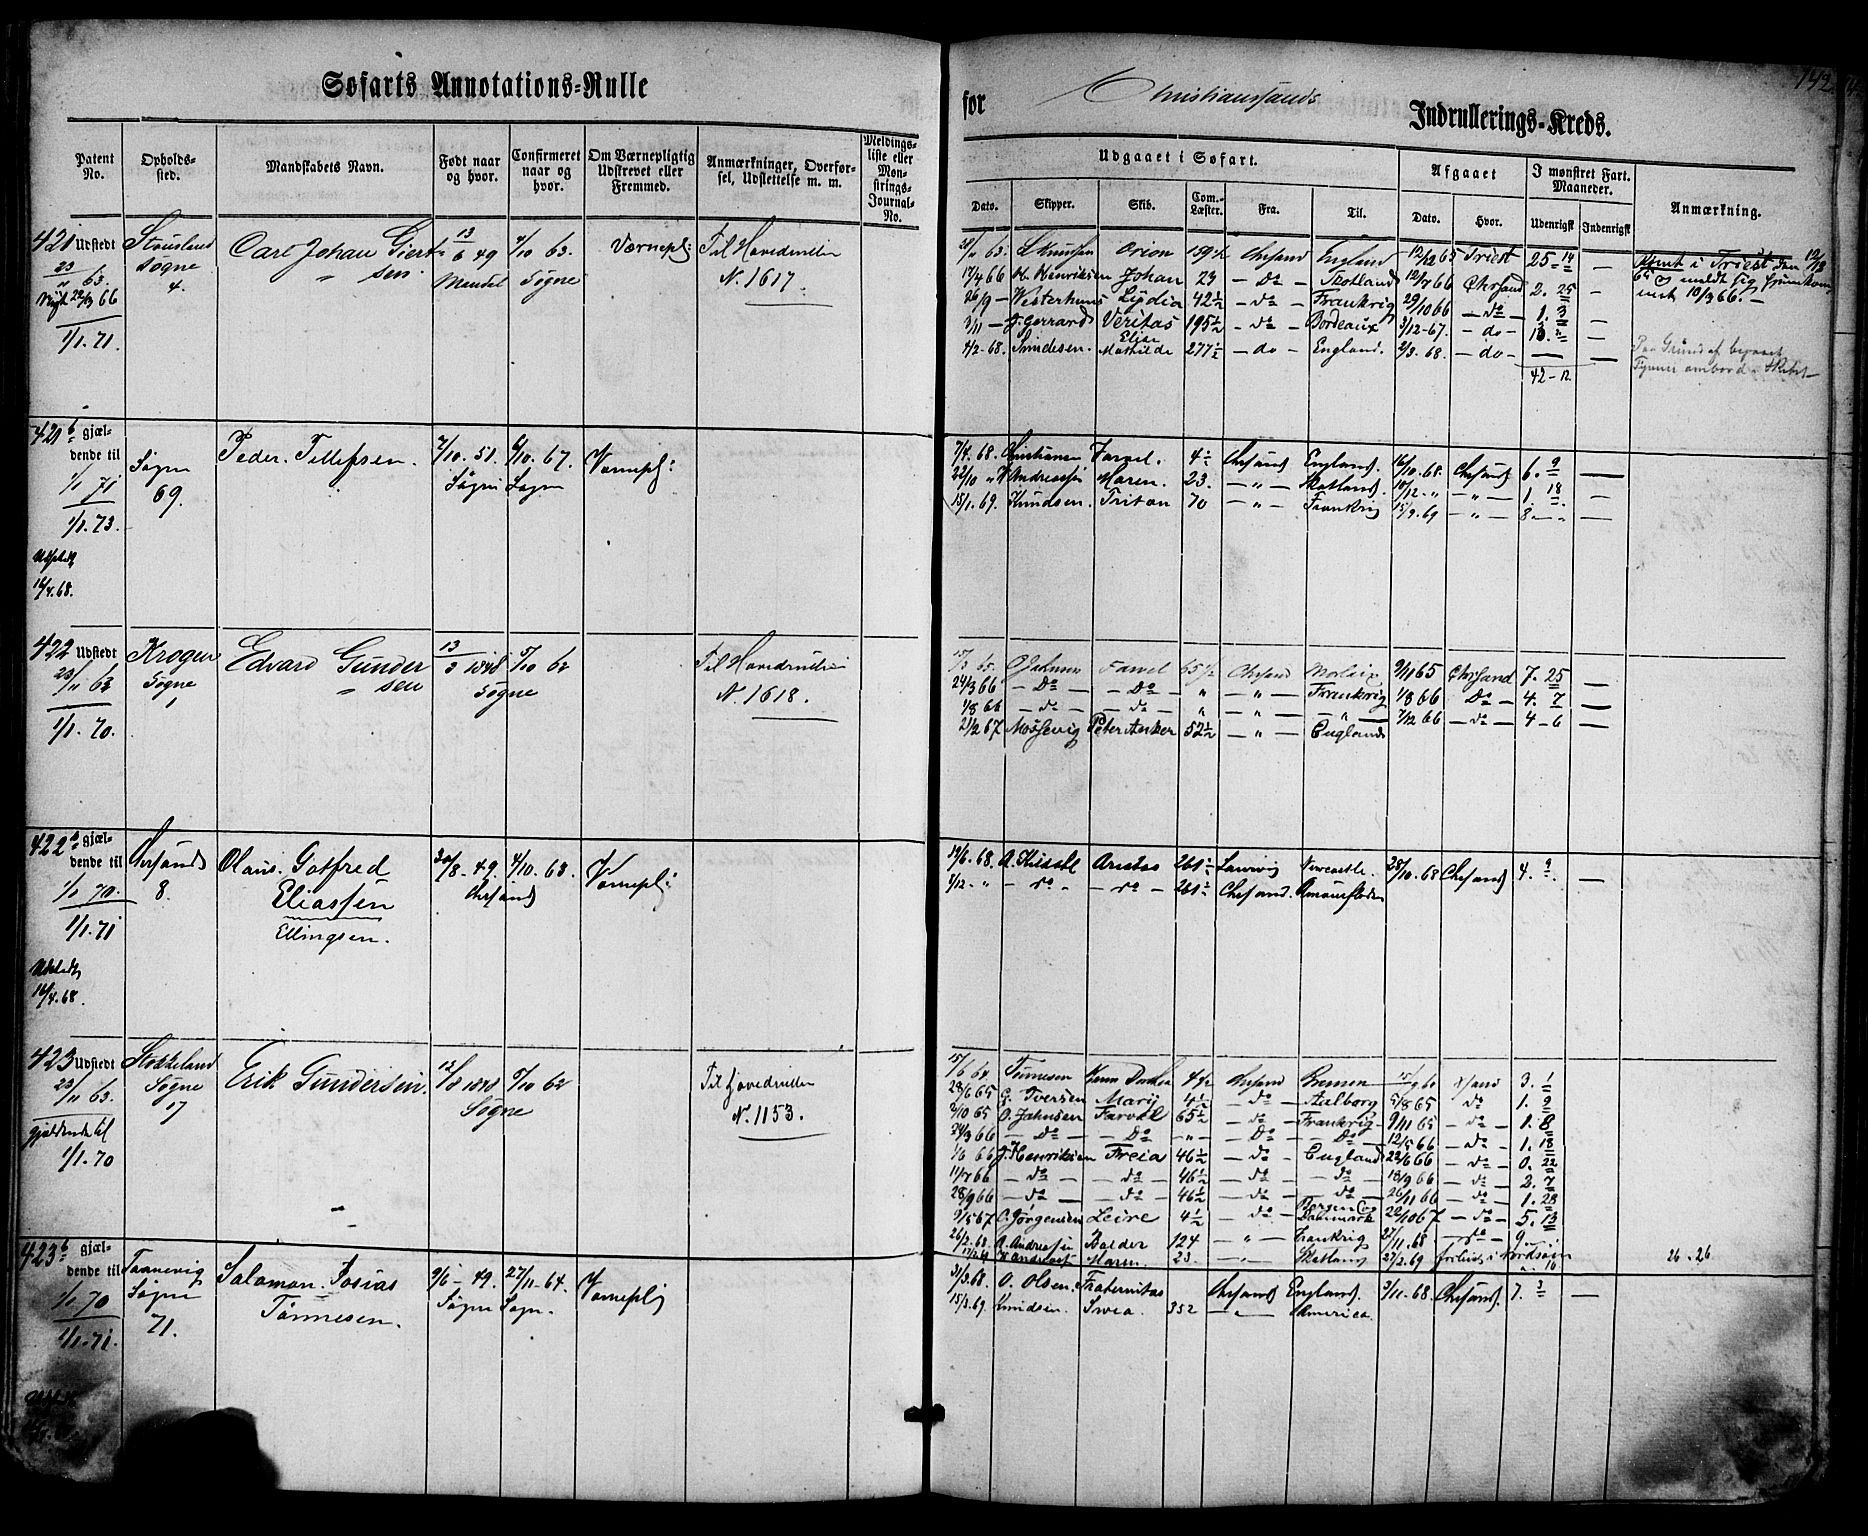 Søfarts Annotations-Rulle
for Christianssands Indrullerings-Kreds.
142
Patent No. Opholds-sted. Mandskabets Navn. Født naar og hvor. Confirmeret naar og hvor. Om Værnepligtig Udskrevet eller Fremmed. Anmærkninger, Overførsel, Udslettelse m. m. Meldingsliste eller Mønstrings-Journal-No.
Udgaaet i Søfart. Afgaaet I mønstret Fart. Maaneder. Anmærkning.
Dato. Skipper. Skib. Com.-Læster. Fra. Til. Dato. Hvor. Udenrigsk Indenrigsk
421 Udstedt 23/11 63.
1/1. 71.
Søgne 4.
Carl Johan Giertsen.
13/6 49 Mandal
4/10 63. Søgne
Værnepl:
Til Hovedrullen
N. 1617
Orion 159½ Chrsand England 12/12 65 Triest 25-14 —
17/4 66 H. Henriksen Johan 23 — Do — Skotland 12/7 66 Chrsand 2. 25 —
26/9 — Westerhuus Lydia 42½ — do — Frankrig 29/10 66 — do — 1. 3 —
3/11 — J. Gerrard Veritas 195½ — do — Bordeaux 3/12-67. — do — 13.
4/2-68. Smidesen. Elise Mathilde 277½ — do — England. 2/3. 68. — do — —
42-12
Afmt i Triest den 12/12 65 & meldt sig hjemkommet 10/3 66. —
Paa Grund af
ombord i Skibet
421 b gjældende til
1/1 71
1/1. 73.
Udstedt 16/4. 68.
Søgne 69.
Peder. Tellefsen.
7/10. 51. Søgne
6/10. 67. Søgne
Værnepl:
7/4. 68. Christiansen Farvel. 4½ Chrsand England. 16/10. 68. Chrsand 6. 9 —
22/10 „ Andreassen Maren. 23. — „ — Skotland. 10/12. „ — „ — 1. 18 —
15/1. 69. Knudsen. Triton 70 — „ — Frankrig 15/9. 69 — „ — 8 — „ —
422 Udstedt
1/1. 70.
Krogen Søgne 1
Edvard Gundersen
13/3 1848 Søgne
5/10 62
Til Hovedrullen
N. 1618.
Farvel 65½ Chrsand 9/11 65 Chrsand 7. 25 —
24/3 66 — Do — — Do — „ — „ — Frankrig 1/8 66 Do — 4. 7 —
1/8 66 — do — — do — „ — „ — — „ — 7/12 66 — do — 4 — 6 —
21/2 67 Mossevig Peter Anker 52½ — „ — England
422 b gjældende til
1/1 70.
1/1. 71
Udstedt 16/4. 68.
Chrsand 8.
Olaus. Gotfred Eliassen
Ellingsen.
30/8. 49. Chrsand
4/10. 63.
Værnepl:
19/6. 68. Laurvig Newcastle. 28/10. 68 Chrsand 4. 9. —
3/12. „ — do — — do — 261½ Chrsand.
423 Udstedt 23/11 63.
gjeldende til 1/1. 70
Stokkeland Søgne 17
Erik Gundersen.
12/8 1848 Søgne
5/10 62
Til Hovedrullen
N. 1153.
Tønnesen 4½ Chrsand Bremen 3. 1
28/6 65 G. Iversen Mary 4½ — do — Aalborg 5/8 65 do — 1. 2
2/10 65 O. Jahnsen Farvel 65½ — do — Frankrig 9/11 65 — do — 1. 8
24/3 66 — Do — — Do — — „ — — Do — — Do — 12/5 66 — do — 1. 18
1/6 66 J. Henriksen Freia 46½ — do — England 22/6 66 — do — 0. 22
11/7 66 — do — — do — 46½ — do — — do — 18/9 66 — do — 2. 7
28/9 66 — do — — do — 46½ — do — — do — 26/11 66 — do — 1. 28
9/5 67 C. Jørgensen Leire 4½ — do — Bergen & Danmark 22/10 67 — do — 5. 13
26/2. 68. A. Andreassen Balder 124 — „ — Frankrig 27/11. 68 — do — 9. „
Maren. 23. — „ — Skotland 27/2. 69 forliist i Nordsøen 16
26-26
423 b gjældende til
1/1 70
1/1. 71.
Søgne 71.
Salomon. Josias Tønnesen.
9/6 — 49. Søgne
27/11-64. Søgn.
Værnepl
31/3. 68. O. Olsen. Fraternitas Chrsand England. 3/11-68. Chrsand. 7. 3 —
15/3. 69. Knudsen. Svea. 352 — „ — America.